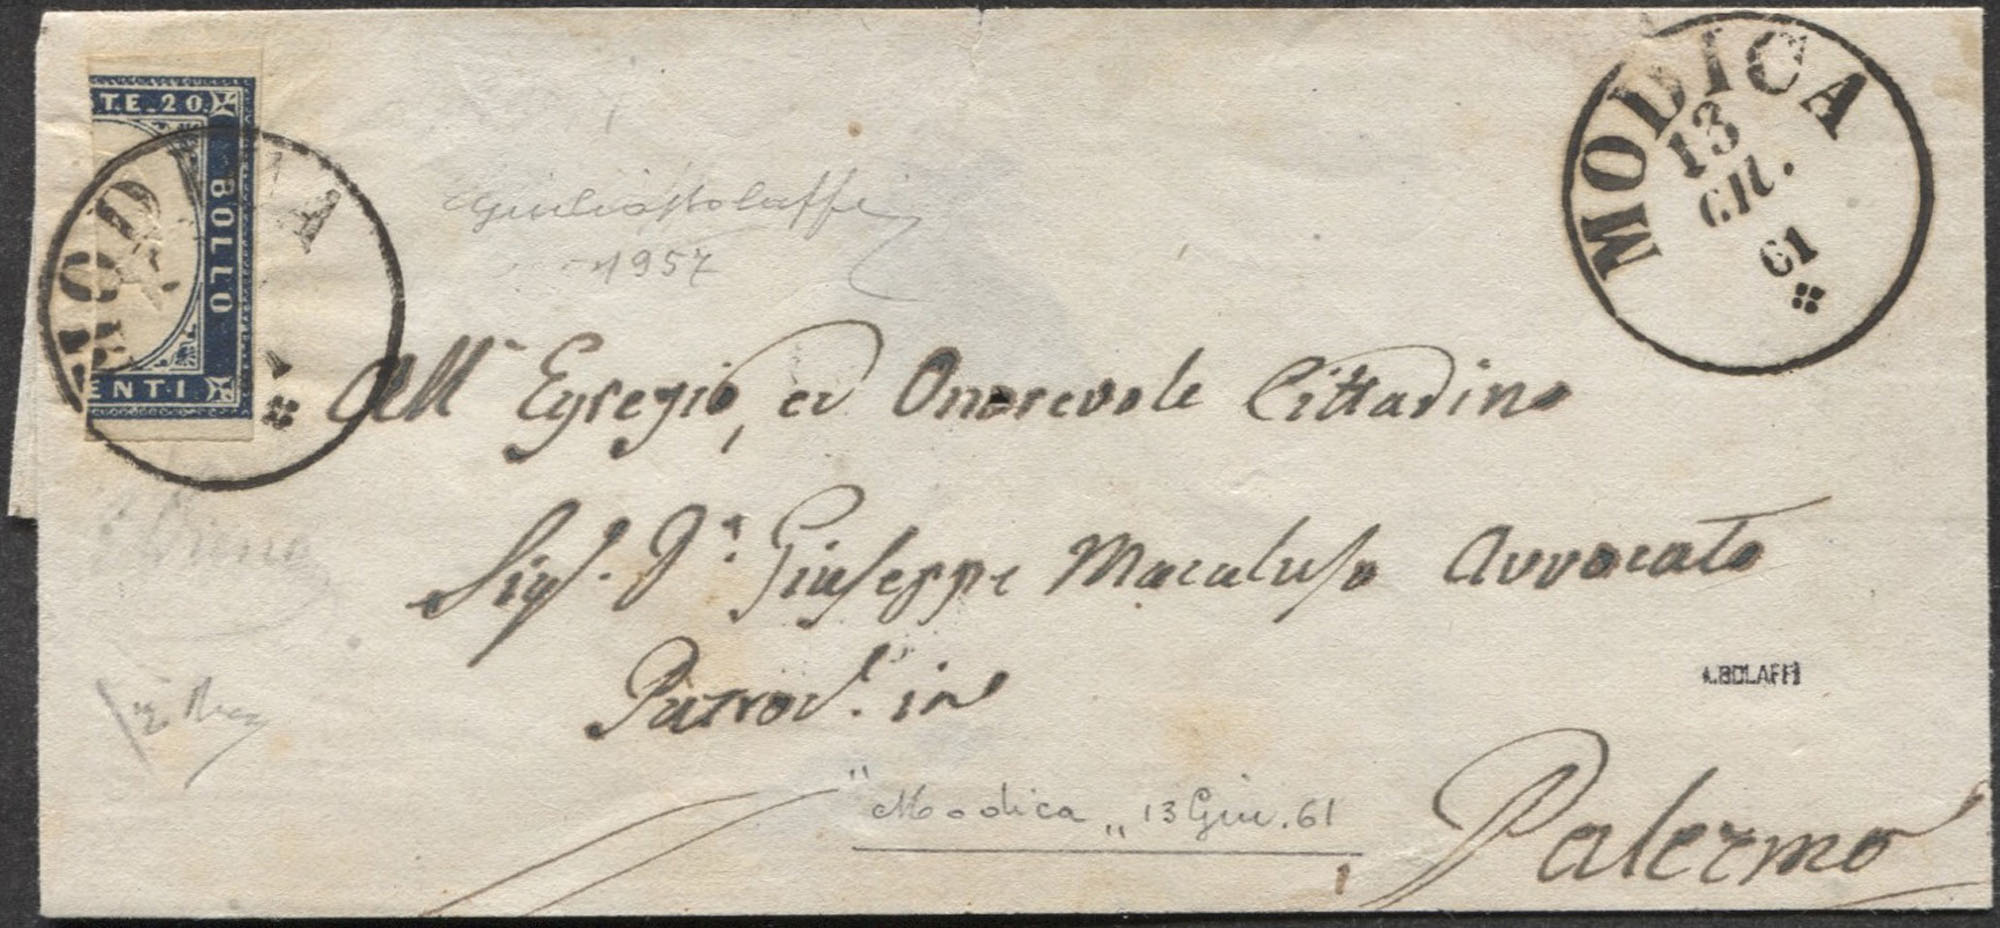 TE.20.
BOLLO
ENTI
MODICA
MODICA
13
GIU.
61
Giulio Bolaffi
1957
All' Egregio, ed Onorevole Cittadino
Sigr. Dn. Giuseppe Macaluso Avvocato
in
A.BOLAFFI
"Modica" 13 Giu. 61
Palermo